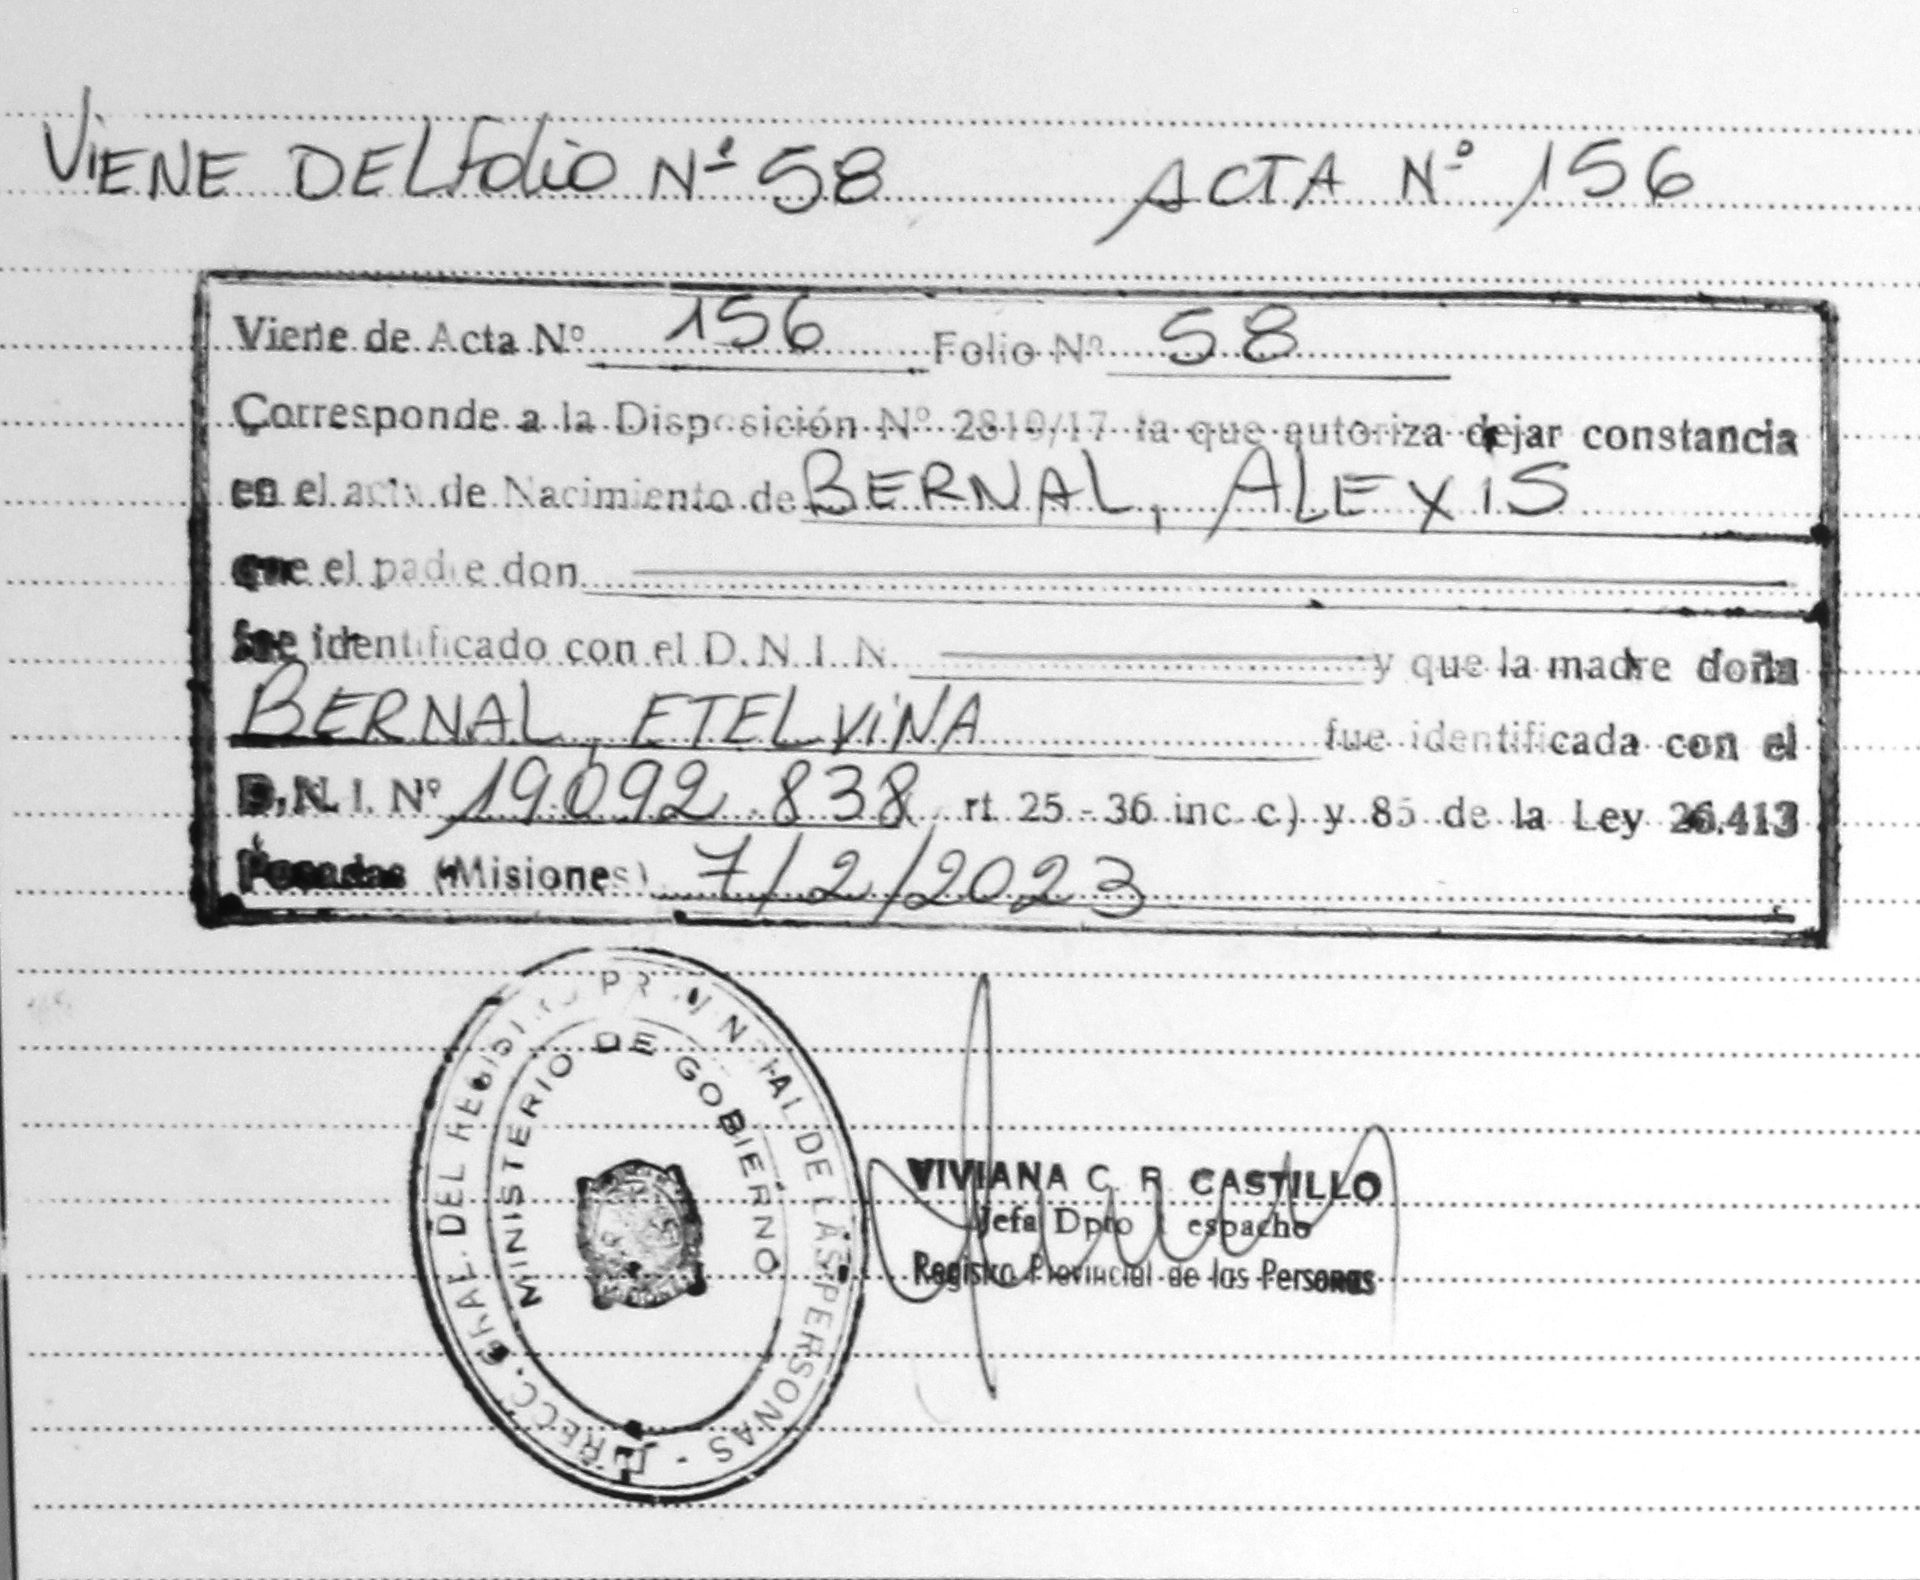 VIENE DEL Folio Nº 58 ACTA Nº 156
Viene de Acta Nº 156 Folio Nº 58
Corresponde a la Disposición Nº 2819/17 la que autoriza dejar constancia
en el acta de Nacimiento de BERNAL, ALEXIS
que el padre don
fue identificado con el D.N.I.N. y que la madre doña
BERNAL, ETELVINA fue identificada con el
D.N.I. Nº 19.092.838 rt. 25 - 36 inc. c) y 85 de la Ley 26.413
Posadas (Misiones) 7/2/2023
DIRECC. GRAL. DEL REGISTRO PROVINCIAL DE LAS PERSONAS -
MINISTERIO DE GOBIERNO
VIVIANA C. R. CASTILLO
Jefa Dpto espacho
Registro Provincial de las Personas